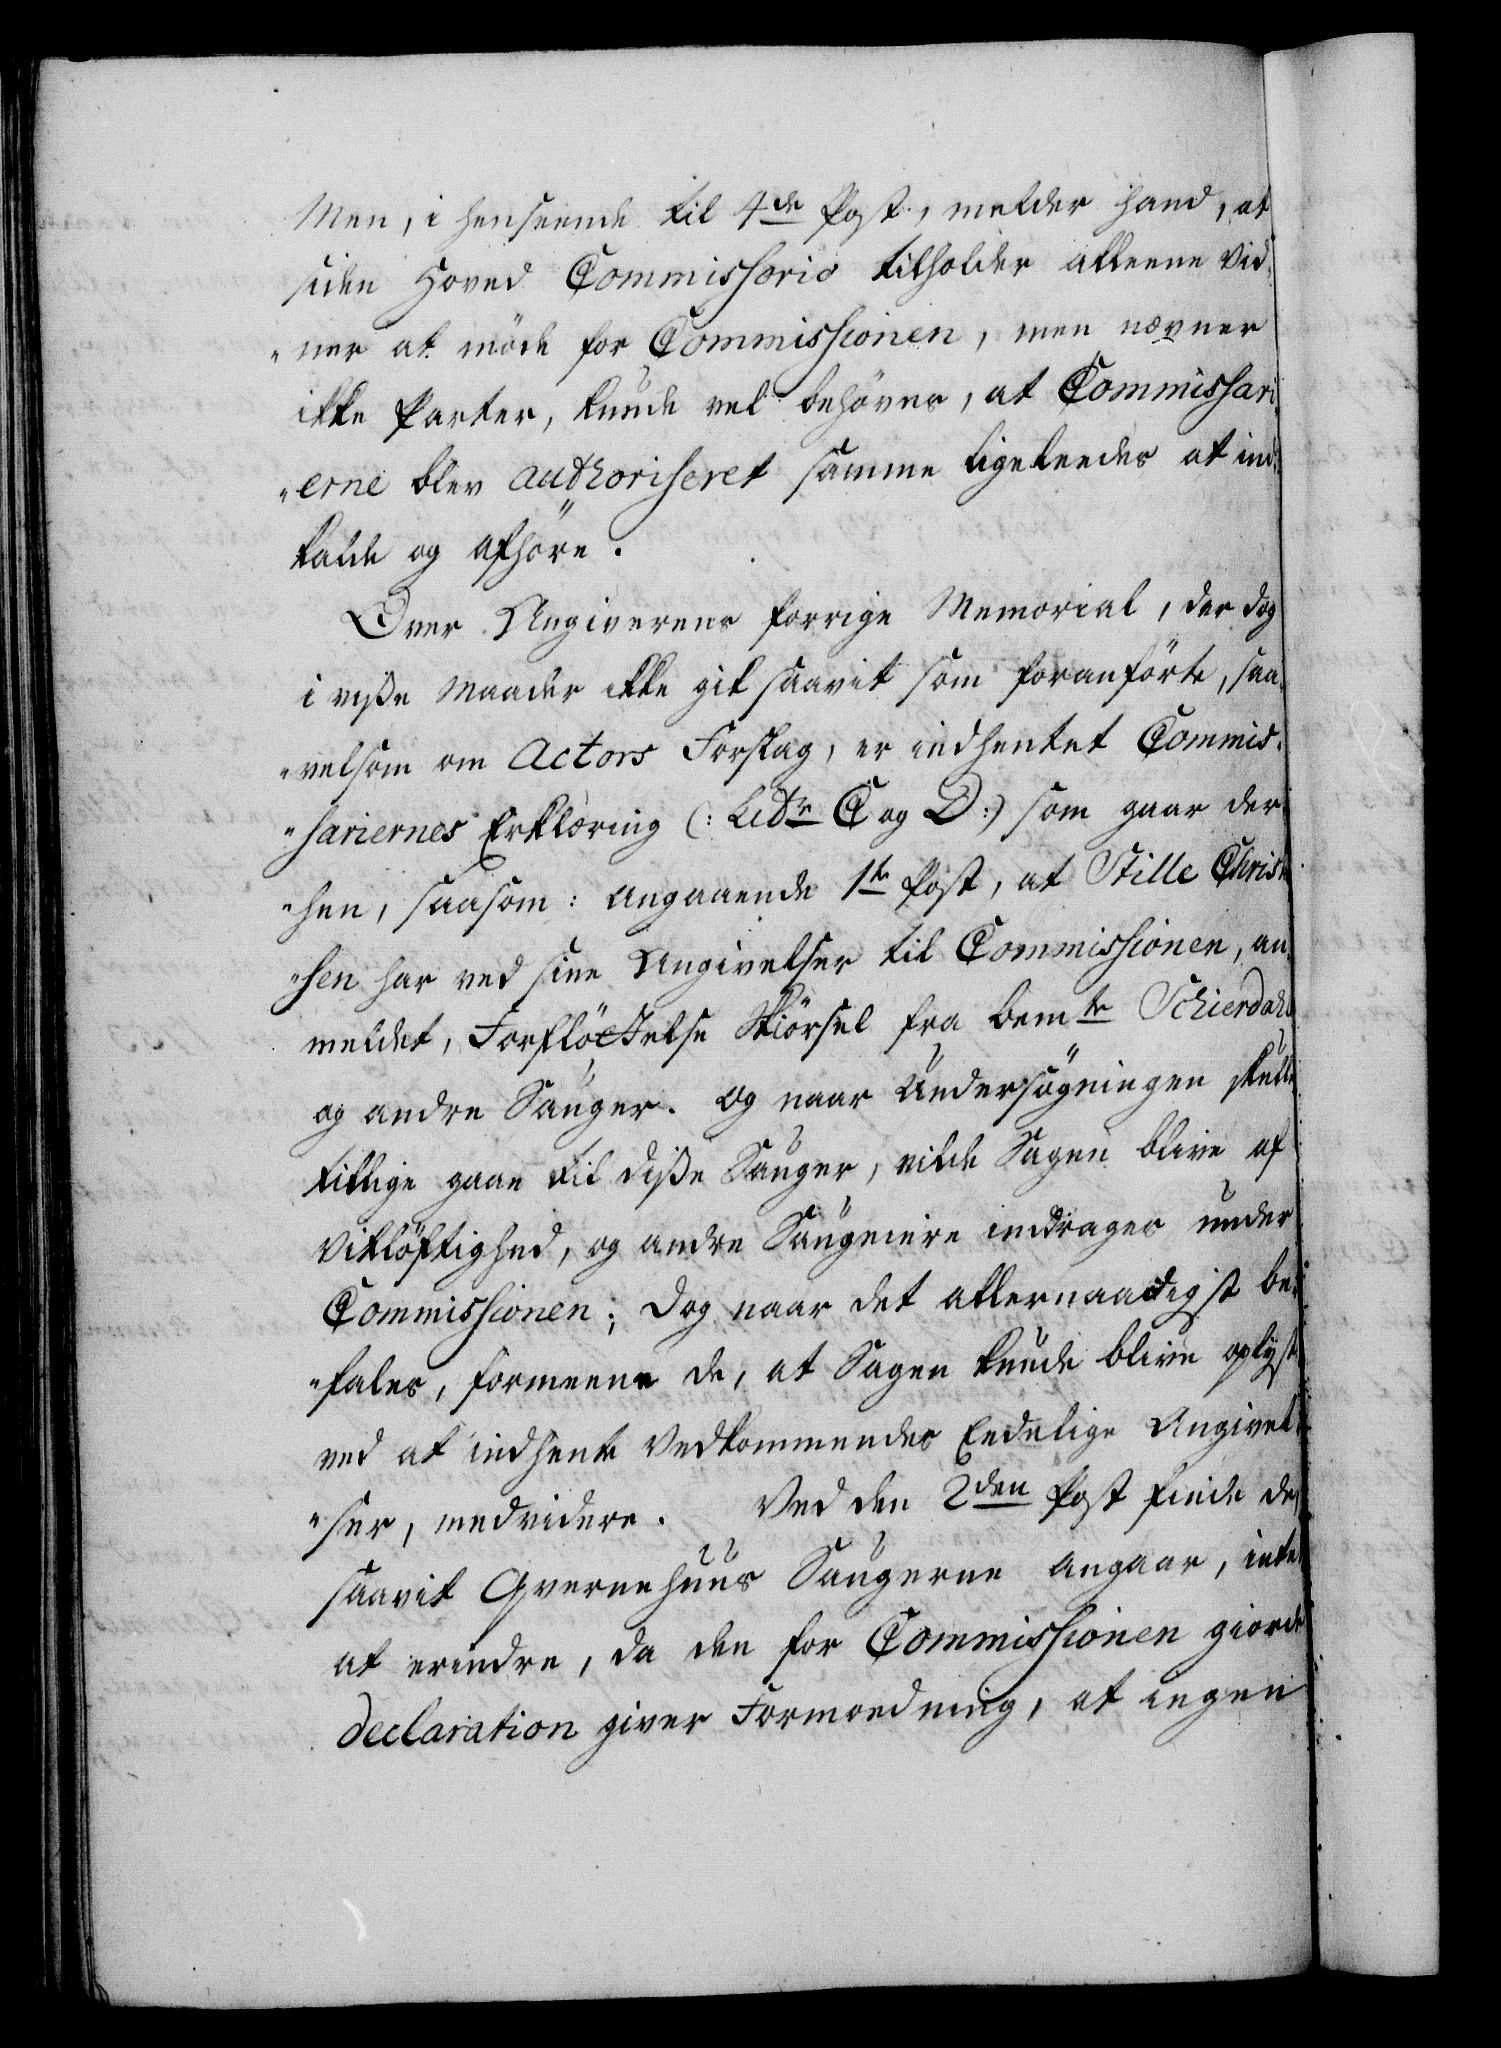 Men, i henseende til 4de Post, melder hand, at
siden Hoved Commissorio tilholder alleene Vid,
„ner at møde for Commissionen, men nævner
ikke Parter, kunde vel behøves, at Commissari,
„erne blev authoriseret samme ligeleedes at ind,
kalde og afhøre.
Over Angiverens forrige Memorial, der dog
i viße Maader ikke gik saavit som foranførte, saa,
„velsom om Actors Forslag, er indhentet Commis,
„sariernes Erklæring (: Litr C og D:) som gaar der,
„hen, saasom: angaaende 1te Post, at Stille Chris,
„sen har ved sine Angivelser til Commissionen, an,
meldet, Forfløttelse Kiørsel fra bemte Schierdahl
og andre Sauger. Og naar Undersøgningen skulle
tillige gaae til diße Sauger, vilde Sagen blive af
Vitløftighed, og andre Saugeiere inddrages under
Commissionen; dog naar det allernaadigst be,
„fales, formeene de, at Sagen kunde blive oplyst
ved at indhente Vedkommendes Eedelige Angivel,
„ser, medvidere. Ved den 2den Post finde de,
saavit Qvernehuus Saugerne angaar, intet
at erindre, da den for Commissionen giorde
declaration giver Formodning, at ingen